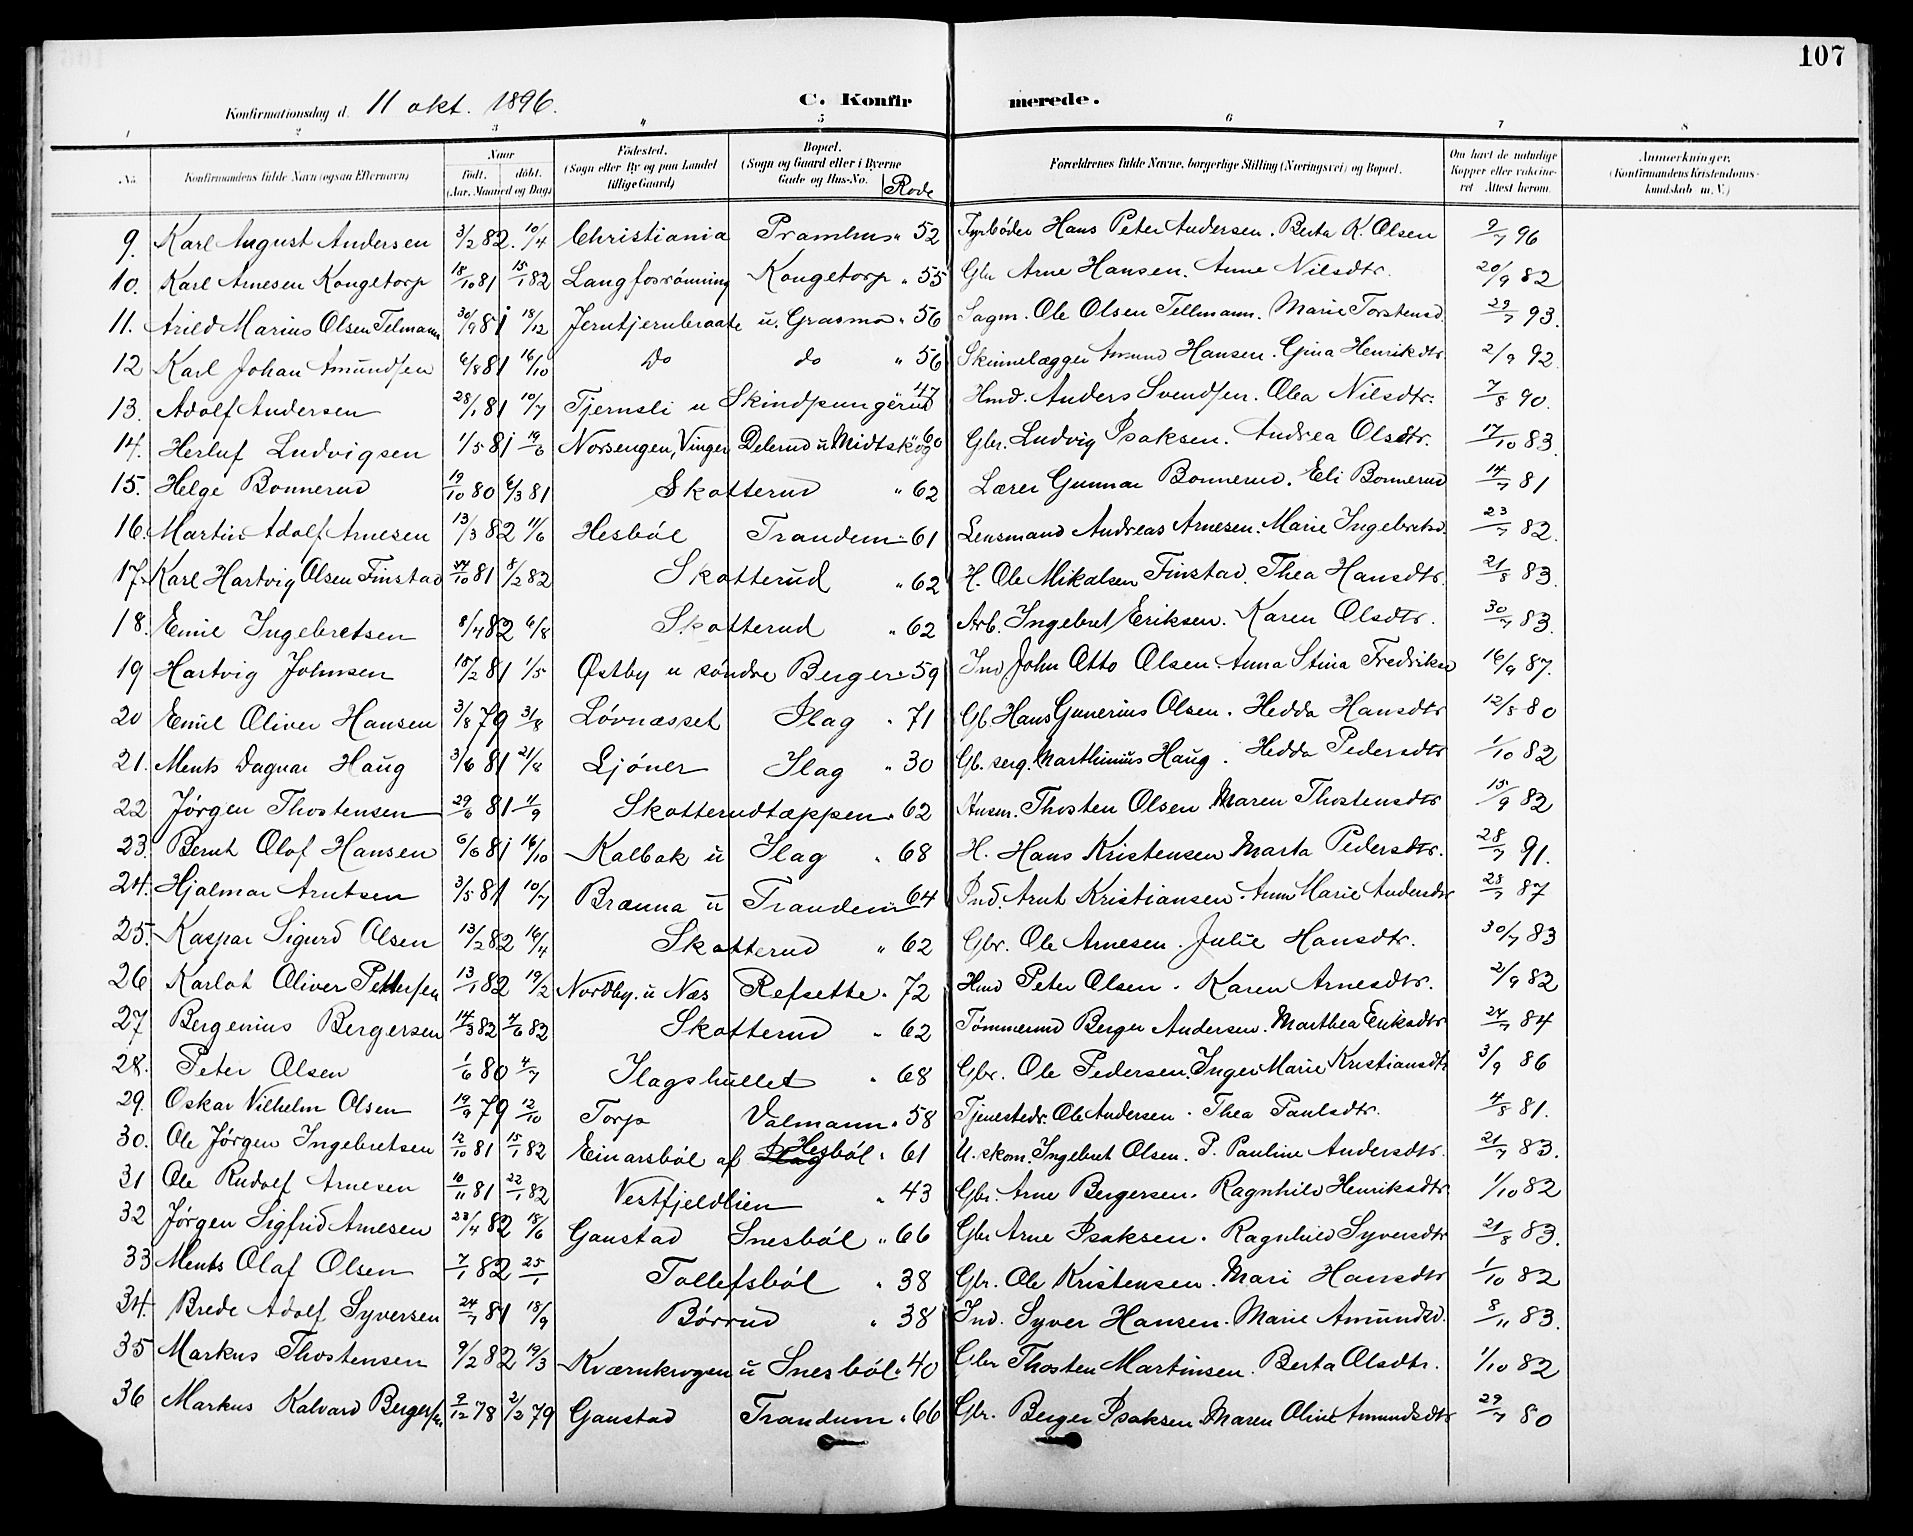 107
Konfirmationsdag d. 11 okt. 1896. C. Konfirmerede.
1 2 3 4 5 6 7 8
No. Konfirmandens fulde Navn (ogsaa Efternavn) Naar født. døbt. (Aar, Maaned og Dag) Fødested. (Sogn eller By og paa Landet tillige Gaard) Bopæl. (Sogn og Gaard eller i Byerne Gade og Hus-No. Rode Forældrenes fulde Navne, borgerlige Stilling (Næringsvei) og Bopæl. Om havt de naturlige Kopper eller vaccineret. Attest herom. Anmerkninger. (Konfirmandens Kristendomskundskab m. V.)
9. Karl August Andersen 3/2 82. 10/4 Christiania Pramhus " 52 Fyrbøder Hans Peter Andersen. Berta K. Olsen 9/7 96
10. Karl Arnesen Kongetorp 18/10 81 15/1 82 Langfosrønning Kongetorp " 55 Gbr Arne Hansen. Anne Nilsdtr. 20/9 82
11. Arild Marius Olsen Telmann 30/9 81 18/12 Jerntjernbraate u. Grasmo " 56 Sagm. Ole Olsen Tellmann. Marie Torstensd. 29/7 93.
12 Karl Johan Amundsen 6/8 81 16/10 Do do " 56 Skinnelægger Amund Hansen. Gina Henrikdtr. 2/9 92.
13. Adolf Andersen 28/1 81 10/7 Tjernsli u Skindpungerud 47 Hmd. Anders Svendsen. Olea Nilsdtr. 7/8 90.
14. Herluf Ludvigsen 1/5 81 19/6 Norsengen, Vinger Delerud u Midtskog 60 Gbr. Ludvig Isaksen. Andrea Olsdtr. 17/10 83.
15. Helge Bonnerud 19/10 80 6/3 81 Skotterud " 62 Lærer Gunnar Bonnerud. Eli Bonnerud 14/7 81
16. Martin Adolf Arnesen 13/3 82 11/6 Hesbøl Trandem " 61 Lensmand Andreas Arnesen. Marie Ingebretsd. 23/7 82.
17. Karl Hartvig Olsen Finstad /10 81 8/2 82 Skotterud " 62 H. Ole Mikalsen Finstad. Thea Hansdtr. 21/8 83.
18. Emil Ingebretsen 8/4 82 6/8 Skotterud " 62 Arb. Ingebret Eriksen. Karen Olsdtr. 30/7 83.
19 Hartvig Johnsen 15/2 81 1/5 Østby u søndre Berger " 59 Ind John Otto Olsen. Anna Stina Fredriksd 16/9 87.
20 Emil Oliver Hansen 3/8 79 31/8 Løvnæsset Ilag " 71 Gb. Hans Gunerius Olsen. Hedda Hansdtr 12/8 80
21. Ments Dagnar Haug 3/6 81 21/8 Ljøner Ilag " 30 Gb. serg. Marthinius Haug. Hedda Pedersdtr 1/10 82
22 Jørgen Thostensen 29/6 81 11/9 Skotterudtæppen " 62 Husm. Thosten Olsen Maren Thostensdtr 15/9 82
23. Bernt Olof Hansen 6/6 81 16/10 Kalbak u Ilag " 68 H. Hans Kristensen Marta Pedersdtr. 28/7 91.
24. Hjalmar Arntsen 3/5 81 10/7 Brænna u Trandem " 64 Ind. Arnt Kristiansen. Ann Marie Andersdtr 23/7 87
25. Kaspar Sigurd Olsen 13/2 82 16/4 Skotterud " 62 Gbr. Ole Arnesen. Julie Hansdtr. 30/7 83
26 Karlot Oliver Pettersen 13/1 82 19/2 Nordby. u Næs Refsette " 72 Hmd Peter Olsen. Karen Arnesdtr. 2/9 82
27 Bergenius Bergersen 14/3 82 4/6 82 Skotterud " 62 Tømmermd Berger Andersen. Marthea Eriksdtr 24/7 84
28. Peter Olsen 1/6 80 4/7 Ilagshullet " 68 Gbr. Ole Pedersen. Inger Marie Kristiansdtr 3/9 86
29. Oskar Vilhelm Olsen 19/9 79 12/10 Torp Valmann " 58 Tjenestedr. Ole Andersen. Thea Paulsdtr. 4/8 81.
30. Ole Jørgen Ingebretsen 12/10 81 15/1 82 Einarsbøl af Hesbøl " 61 U. skom. Ingebret Olsen. P. Pauline Andersdtr. 21/7 83.
31 Ole Rudolf Arnesen 10/11 81 22/1 82 Vestfjeldlien " 43 Gbr. Arne Bergersen. Ragnhild Henriksdtr. 1/10 82
32 Jørgen Sigfrid Arnesen 23/4 82 18/6 Ganstad Snesbøl " 66 Gbr Arne Isaksen. Ragnhild Syversdtr 21/8 83.
33 Ments Olaf Olsen 7/1 82 25/1 Tollefsbøl " 38 Gbr. Ole Kristensen. Mari Hansdtr 1/10 82
34. Brede Adolf Syversen 24/7 81 18/9 Børrud " 38 Ind. Syver Hansen. Marie Amundsd. 8/11 83.
35 Markus Thostensen 9/2 82 19/3 Kværnkrogen u Snesbøl " 40 Gbr Thosten Martinsen. Berta Olsdtr. 1/10 82
36 Markus Kalvard Bergersen 9/12 78 2/2 79 Ganstad Trandum " 66 Gbr. Berger Isaksen Maren Oline Amundsdtr 29/7 80